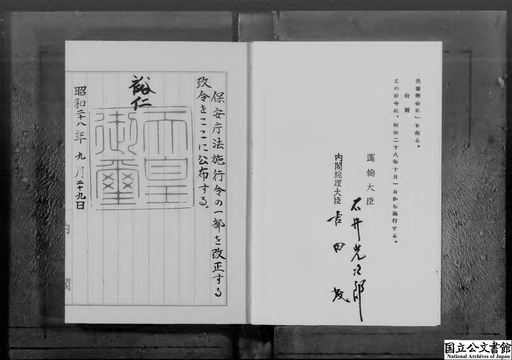 附則
この政令は、昭和二十八年十月一日から施行する。
運輸大臣 石井光次郎
内閣総理大臣 吉田茂
保安庁法施行令の一部を改正する
政令をここに公布する。
裕仁
天皇御璽
昭和二十八年九月二十九日
内閣
国立公文書館
National Archives of Japan